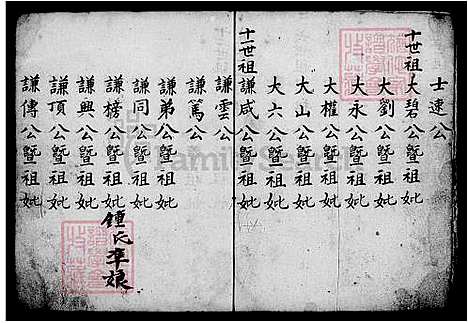 士速公
十世祖大碧公暨祖妣
大劉公暨祖妣
大永公暨祖妣
大權公暨祖妣
大山公暨祖妣
大六公暨祖妣
十一世祖謙咸公暨祖妣
謙雲公
謙篤公
謙弟公暨祖妣
謙同公暨祖妣
謙榜公暨祖妣
謙興公暨祖妣
謙頂公暨祖妣鍾氏準娘
謙傳公暨祖妣